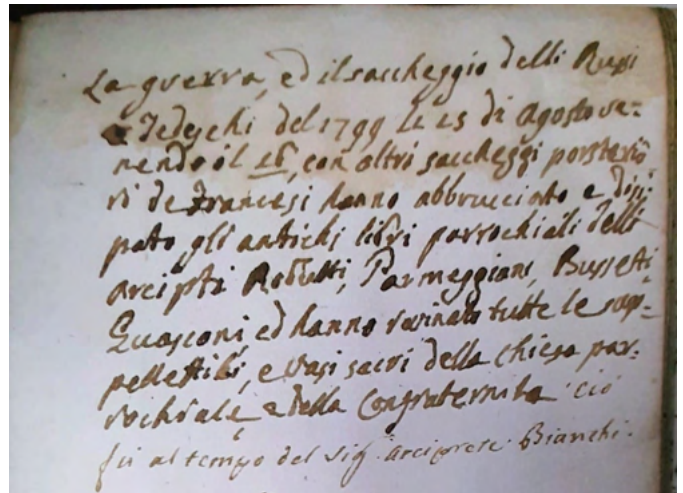 La guerra, ed il saccheggio delli Russi
e Tedeschi del 1799 li 15 di Agosto ve=
nendo il 16, con altri saccheggi posterio
ri de Francesi hanno abbrucciato e dissi
pato gli antichi libri parrochiali delli
arcipti Robutti, Parmeggiani, Bussetti
Guasconi, ed hanno rovinato tutte le sup=
pellettili, e vasi sacri della Chiesa par=
rochiale, e della Confraternita ciò
fù al tempo del Sig. arciprete Bianchi.